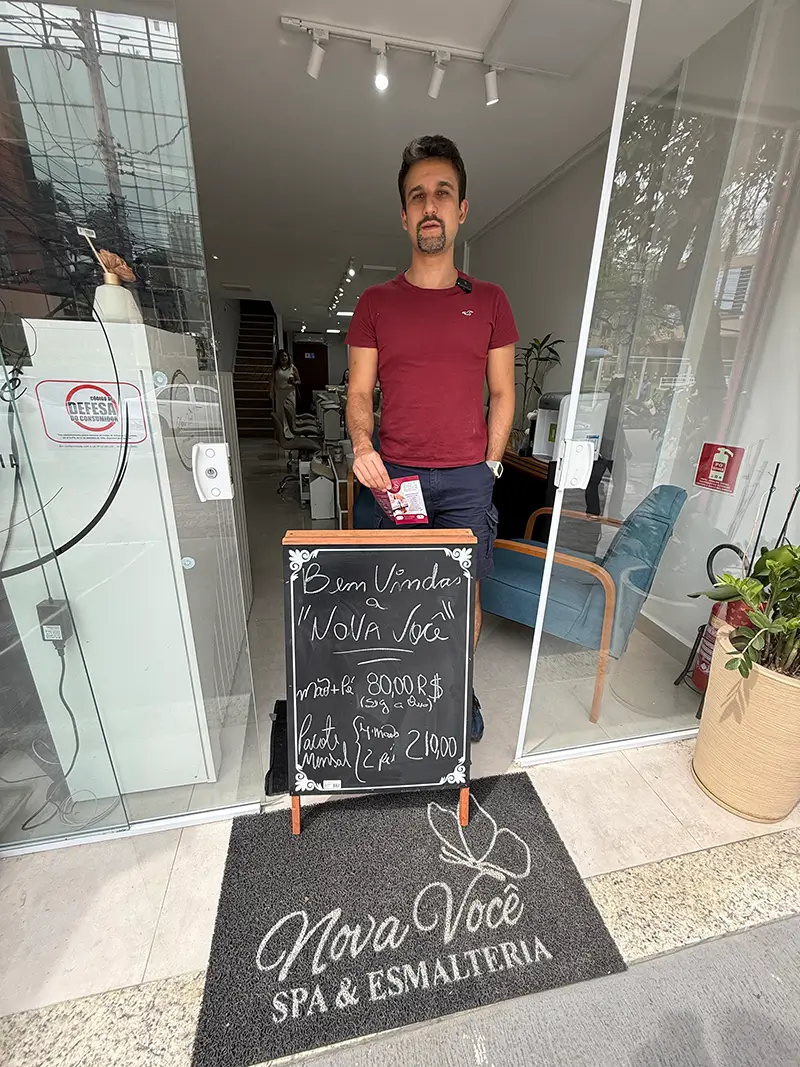 CÓDIGO DE
DEFESA
DO CONSUMIDOR
PÓ
Bem Vindas
a
"NOVA VOCÊ"
mão+Pé 80,00 R$
(seg a Qui)
Pacote
Mensal
4 mãos
2 pé
210,00
Nova Você
SPA & ESMALTERIA